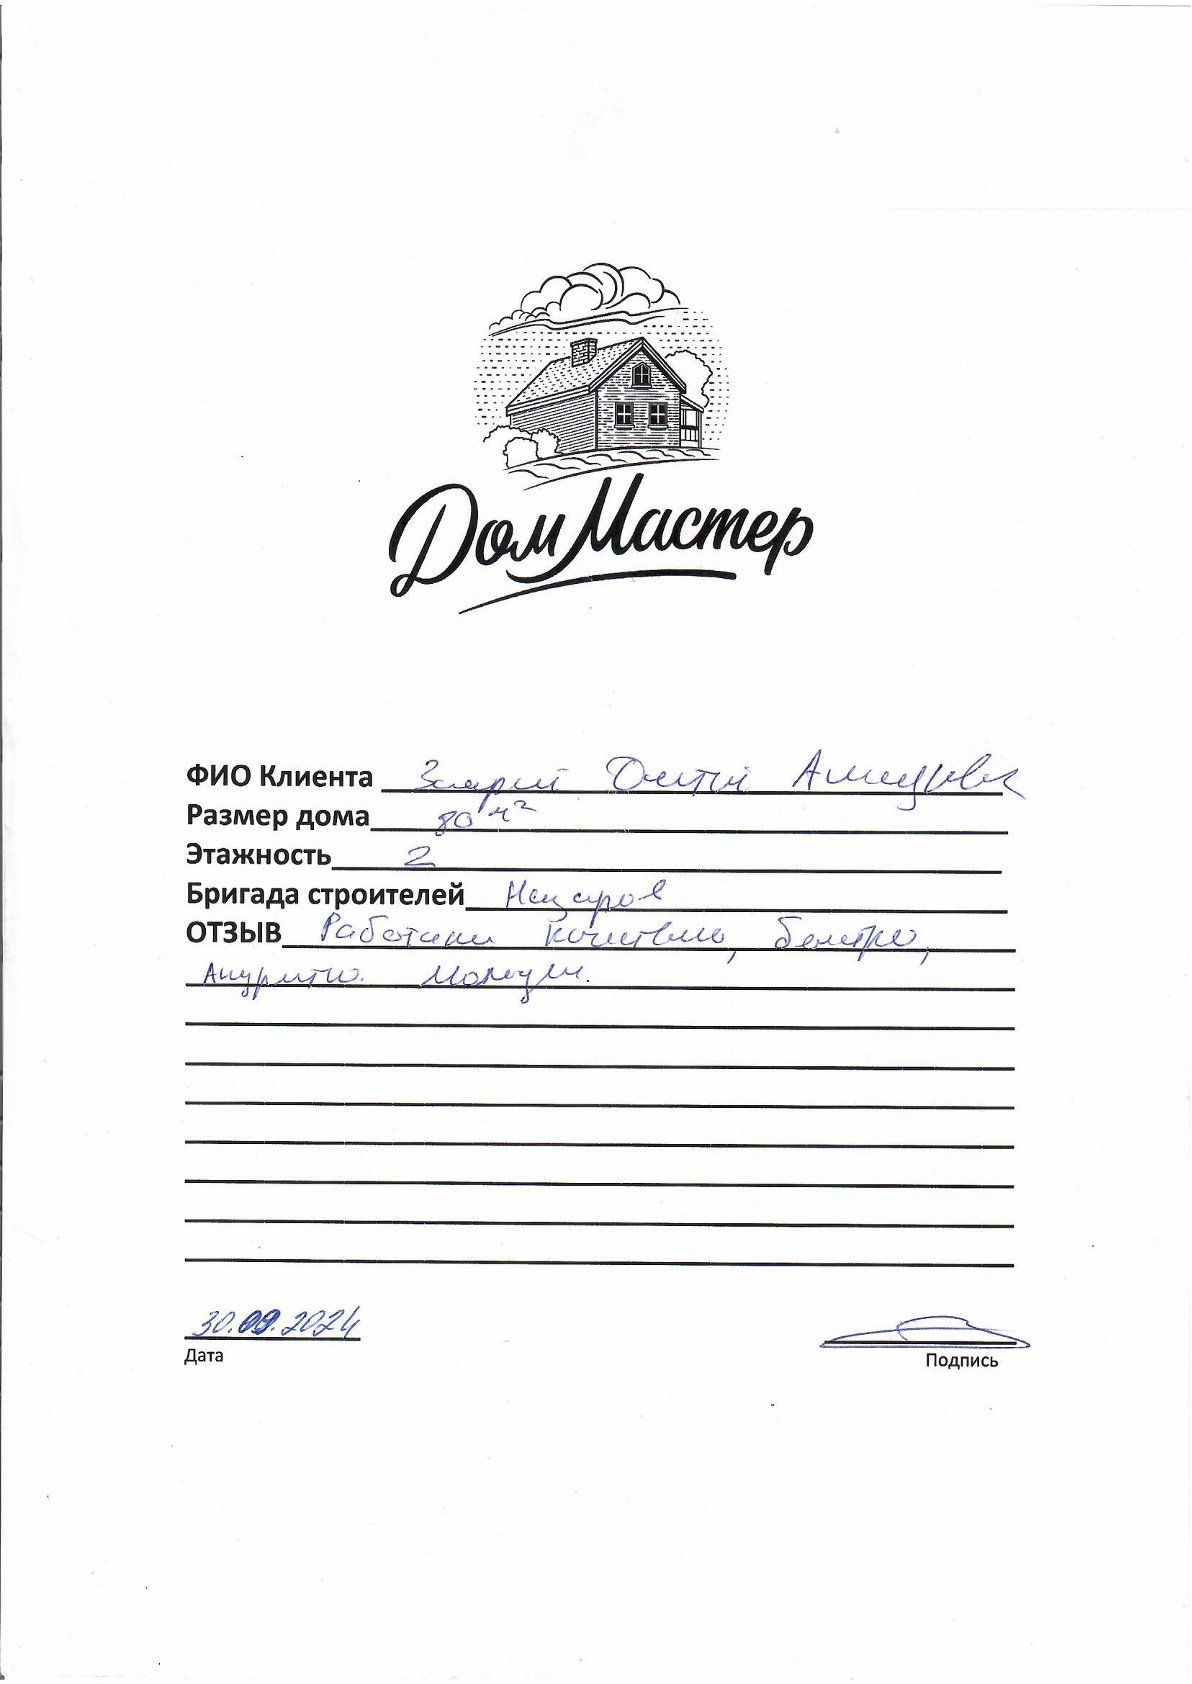 ДомМастер
ФИО Клиента Дмитрий
Размер дома 80 м²
Этажность 2
Бригада строителей
ОТЗЫВ Работали качественно, быстро,
Аккуратно. Молодцы.
30.09.2024
Дата
Подпись